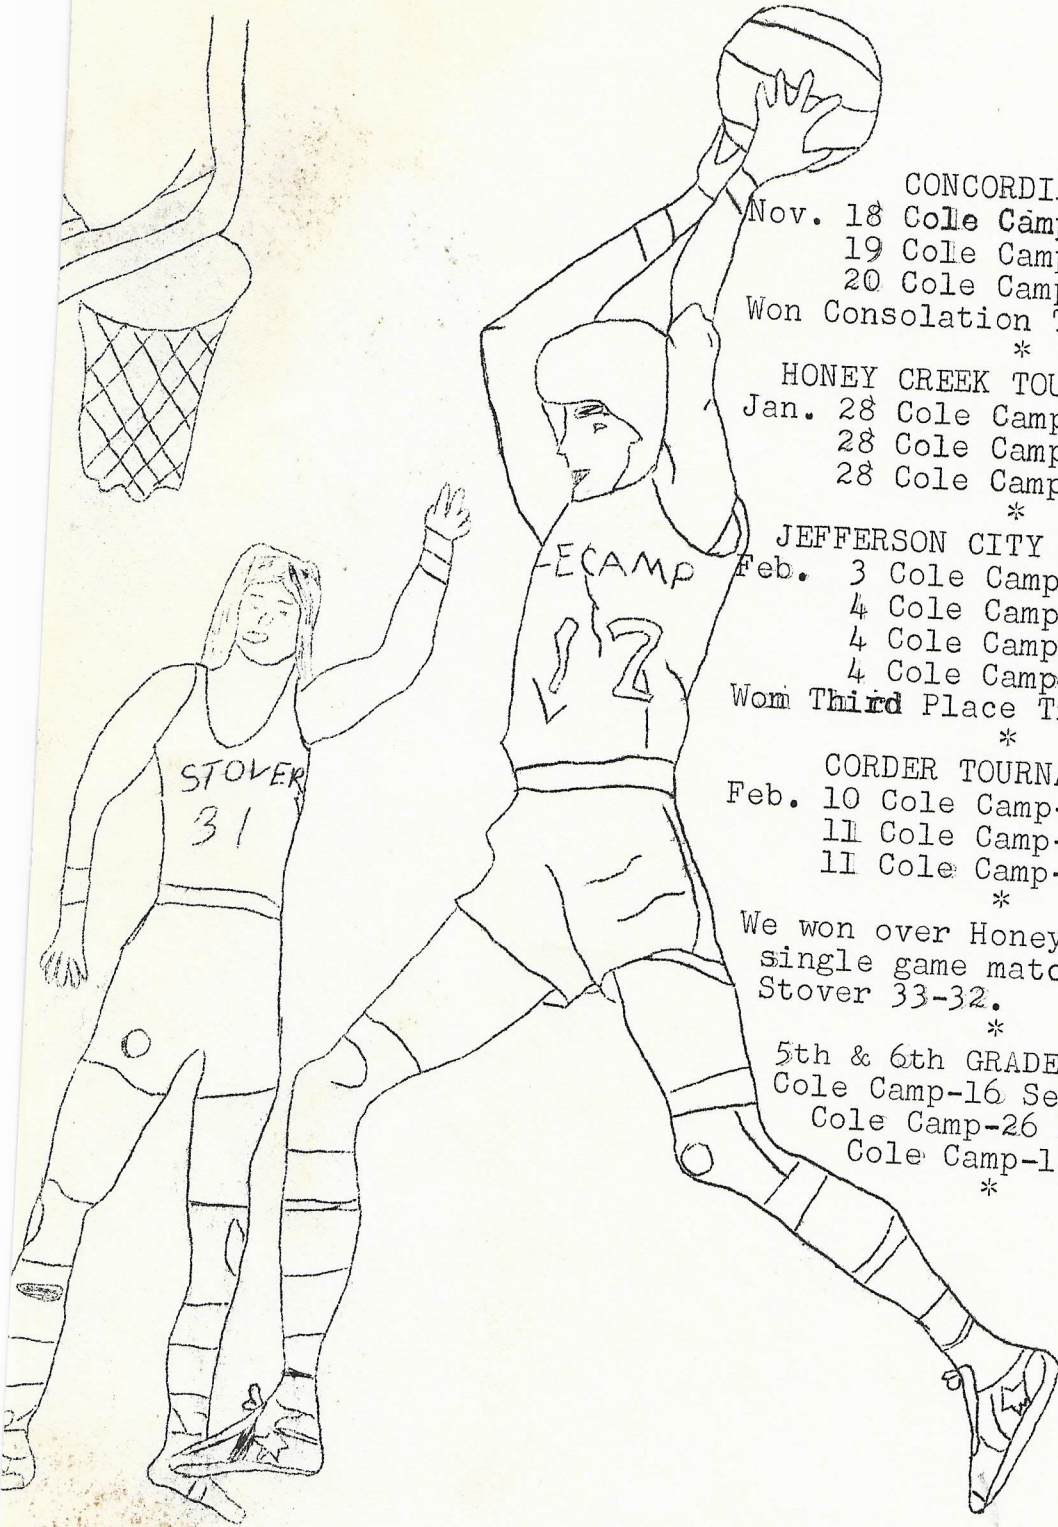 CONCORDI
Nov. 18 Cole Cam
19 Cole Cam
20 Cole Camp
Won Consolation
*
HONEY CREEK TOU
Jan. 28 Cole Camp
28 Cole Camp
28 Cole Camp
*
JEFFERSON CITY
Feb. 3 Cole Camp
4 Cole Camp
4 Cole Camp
4 Cole Camp
Won Third Place T
*
CORDER TOURNA
Feb. 10 Cole Camp-
11 Cole Camp-
11 Cole Camp-
*
We won over Honey
single game matc
Stover 33-32.
*
5th & 6th GRADE
Cole Camp-16 Se
Cole Camp-26
Cole Camp-1
*
ECAMP
12
STOVER
31